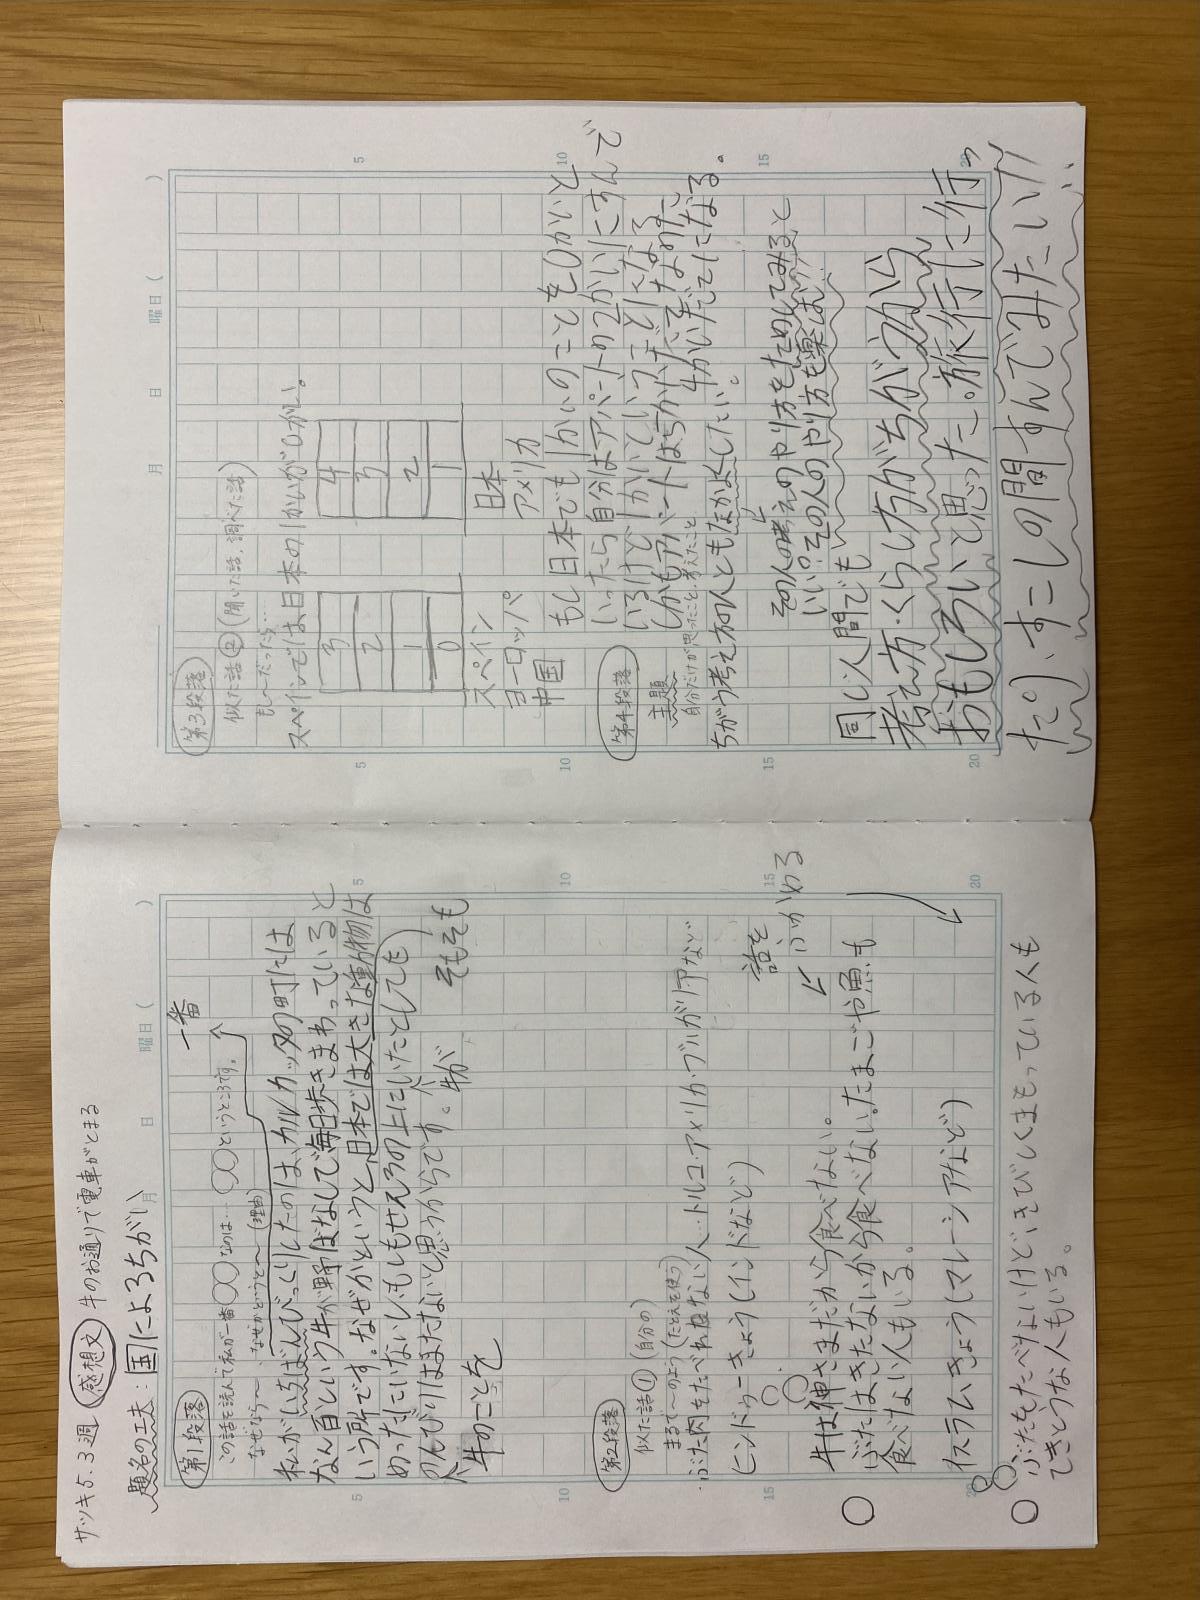 サツキ5.3週 感想文 牛のお通りで電車がとまる
題名の工夫:国によるちがい
月 日 曜日( )
第1段落
一番
この話を読んで私が一番○○なのは…○○というところです。
なぜなら〜、なぜかどうと〜(理由)
私がいちばんびっくりしたのは、カルカッタの町には
なん百という牛が野ばなしで毎日歩きまわっていると
いう所です。なぜかというと、日本では大きな動物は
めったにいないしもしもせんろの上にいたとしても
のんびりはまたないと思うからです。牛が そもそも
牛のことを
第2段落
似た話① (自分の)
まるで〜のよう(たとえを使う)
・ぶた肉をたべれない人…トルコ・アメリカ・ブルガリアなど
ヒンドゥーきょう(インドなど)
話を
ふかめる
牛は神さまだから食べない。
ぶたはきたないから食べない。たまごや魚も
食べない人もいる。
イスラムきょう(マレーシアなど)
ぶたをたべないけど、きびしくまもっている人も
てきとうな人もいる。
5
10
15
20
月 日 曜日( )
第3段落
似た話② (聞いた話、調べた話)
もし〜だったら…
スペインでは日本の1かいが0かい。
3
2
1
0
4
3
2
1
スペイン
ヨーロッパ
中国
日本
アメリカ
もし日本でも1かいのことを0かいと
いったら自分はアパートの2かいにすんで
いるけど1かいということになる
しかもアパートは5かいだてなのに
4かいだてになる。
第4段落
主題
自分だけが思ったこと、考えたこと
ちがう考え方の人ともなかよくしたい。
その人の考えのやり方をためしてみると
いい。その人のやり方も楽しい
同じ人間でも
考え方・くらし方がちがうから
おもしろいと思った。旅行に行っ
たり、すこしの間すんでみたい!!
5
10
15
20